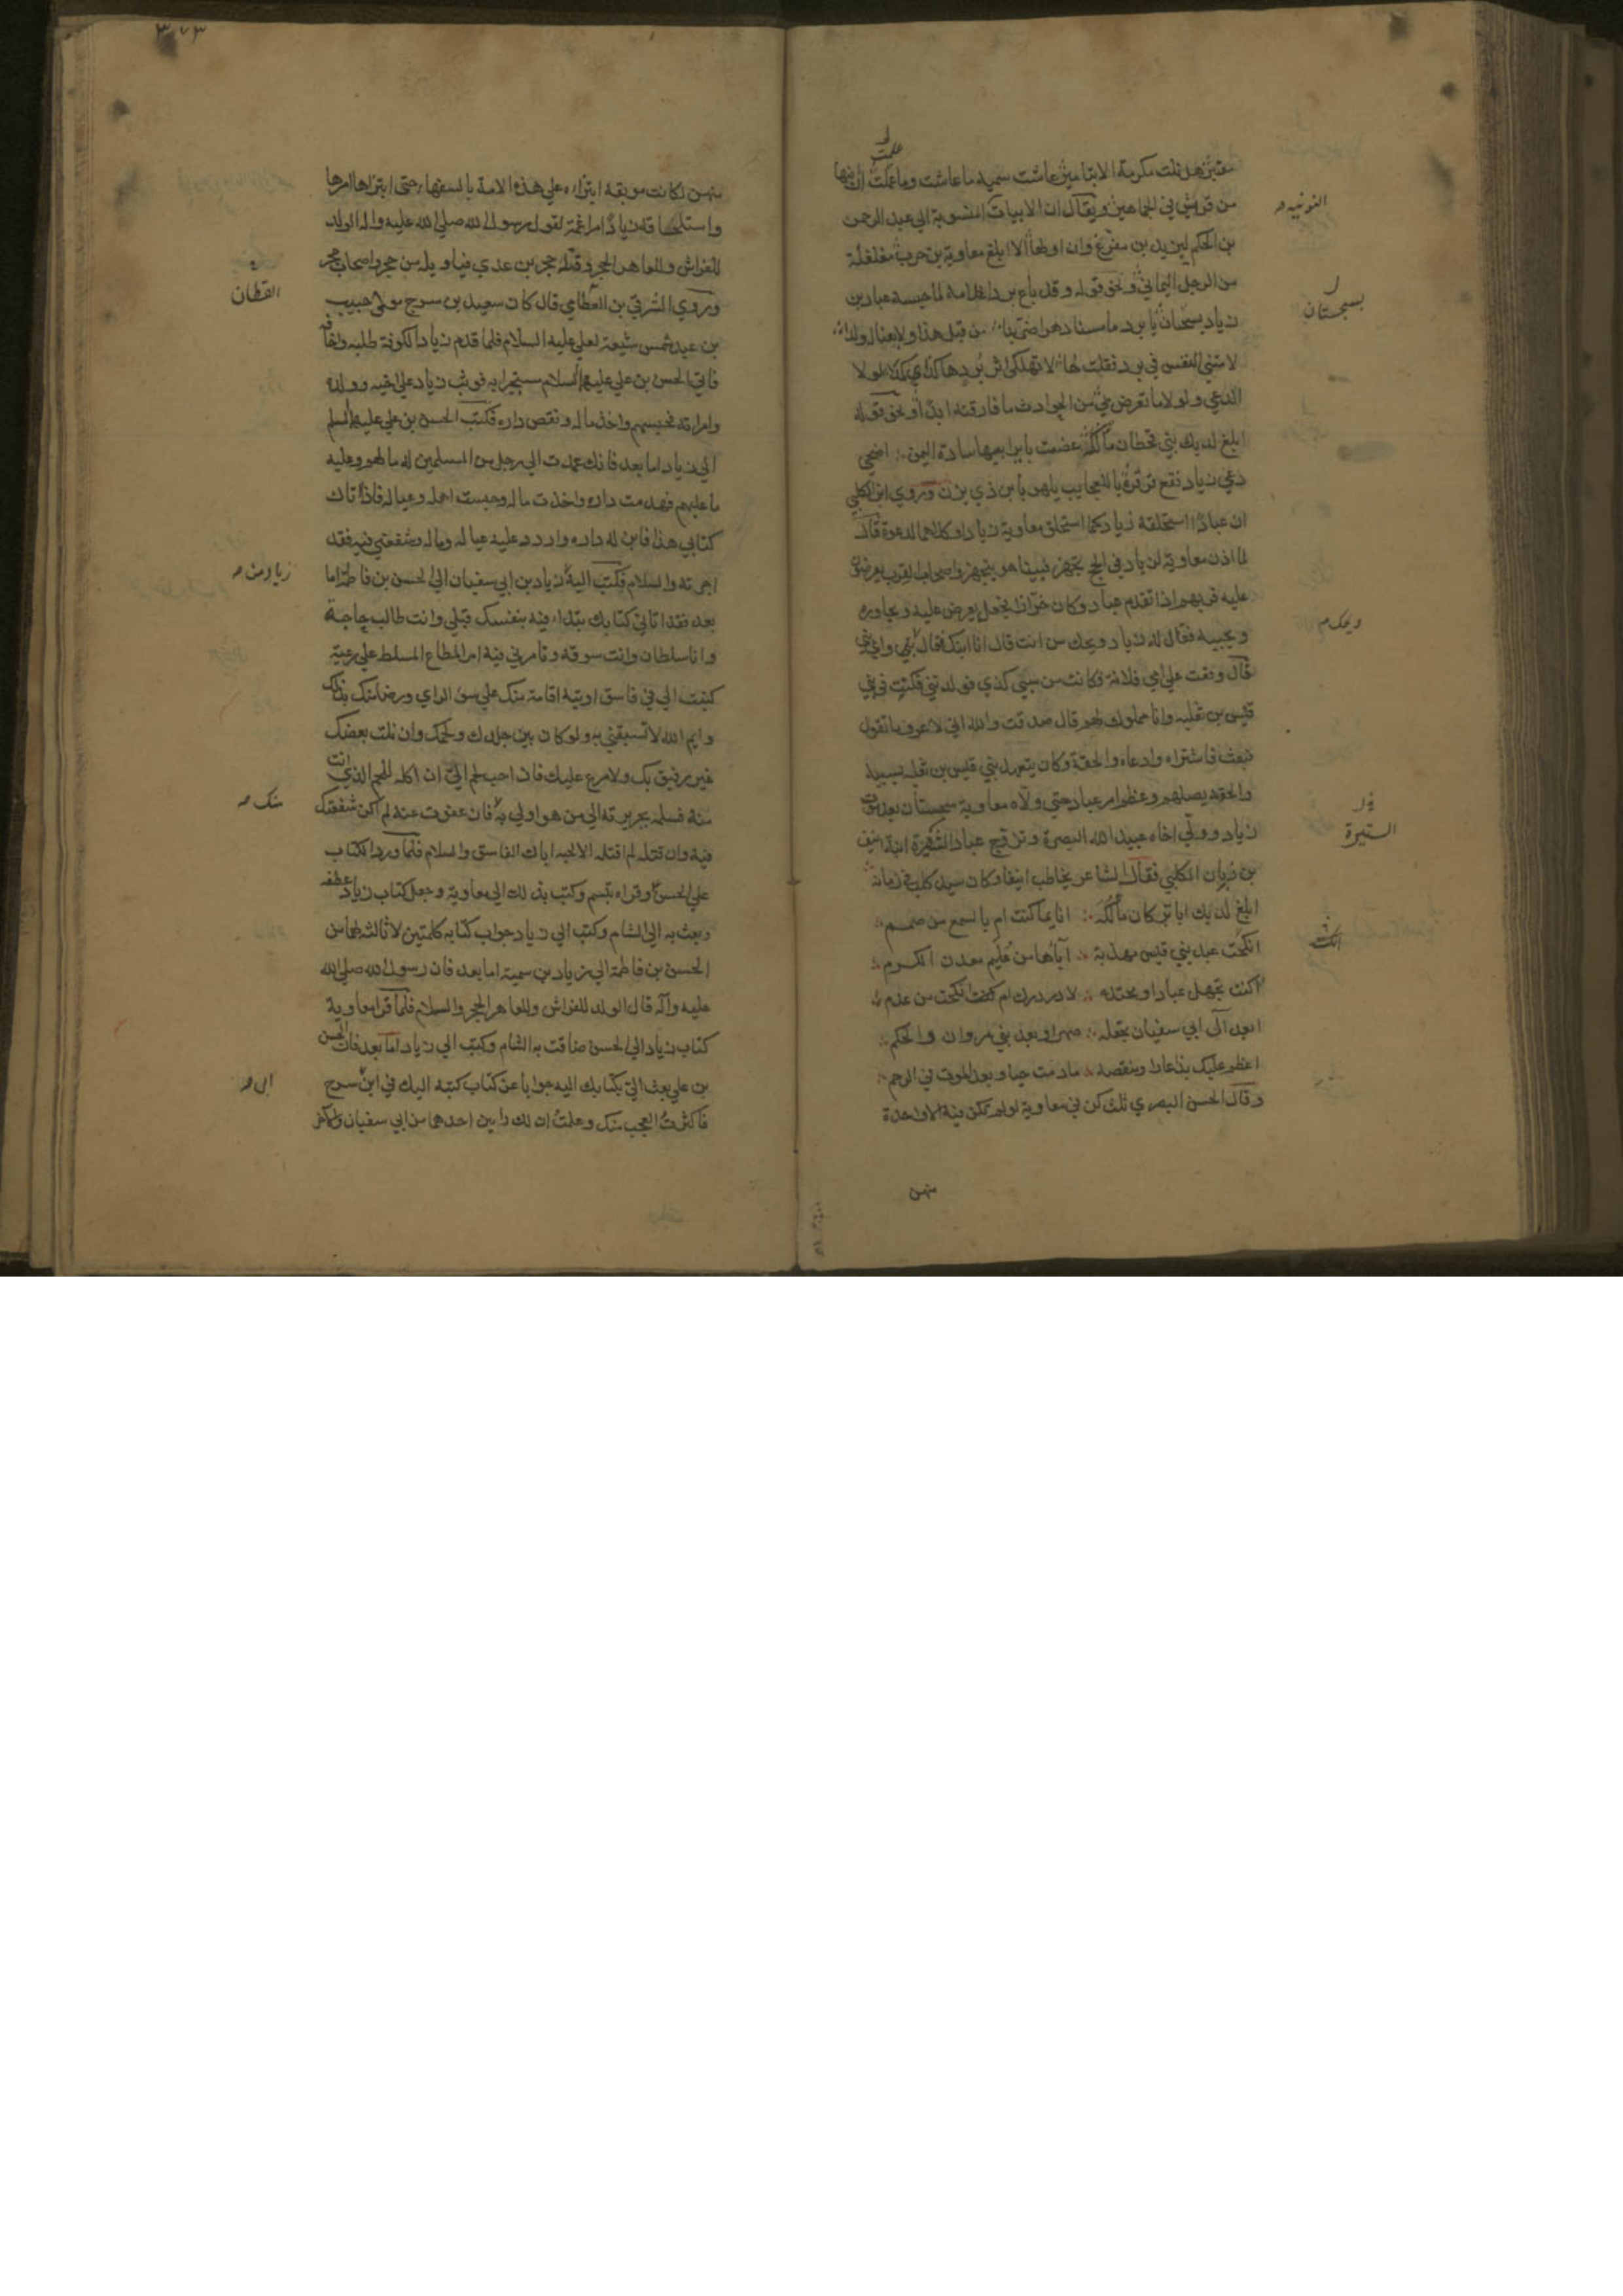 معتبر هل نلت مكرمة الا بتاميز عاشت سميه ما عاشت وما علمت ان ابنها
علمت
من قريش في الجماهيز ويقال ان الابيات المنسوبة الى عبد الرحمن
النونيه
بن الحكم ليزيد بن مفرغ وان اولها الا ابلغ معاوية بن حرب مغلغلة
من الرجل اليماني ونحو قوله وقد باع بردا غلامه لما حبسه عباد بن
زياد بسجستان يا برد ما مسنا دهر اضر بنا من قبل هذا ولا بعنا له ولدا
بسجستان
لامتني النفس في برد فقلت لها لا تهلكي اثر برد هكذا كمدا لولا
الدعي ولولا ما تعرض لي من الحوادث ما فارقته ابدا ونحو قوله
ابلغ لديك بني قحطان مألكة عضت باير ابيها سادة اليمن اضحى
دعي زياد فقع قرقرة يا للعجايب يلهو بابن ذي يزن وروى ابن الكلبي
ان عبادا استلحقه زياد كما استلحق معاوية زيادا وكلاهما لدعوة قال
لما اذن معاوية لزياد في الحج تجهز فبينا هو يتجهز واصحاب القرب يعرضون
عليه قربهم اذا تقدم عباد وكان خرازا فجعل يعرض عليه ويحاوره
ويجيبه فقال له زياد ويحك من انت قال انا ابنك فقال ابني واي بني
ويحك
قال وقعت على امي فلانة وكانت من بني كذي فولدتني فكنت في بني
قيس بن ثعلبه وانا مملوك لهم قال صدقت والله اني لاعرف ما تقول
فبعث فاشتراه وادعاه والحقه وكان يتعهد بني قيس بن ثعلبه بسببه
والحقه يصلهم وعظم امر عباد حتى ولاه معاوية سجستان بعد موت
زياد وولي اخاه عبيد الله البصرة وتزوج عباد الستيرة ابنة انيف
الستيرة
بن زيان الكلبي فقال الشاعر يخاطب انيفا وكان سيد كلب في زمانه
ابلغ لديك ابا تركان مألكة انايما كنت ام بالسمع من صمم
انكحت عبد بني قيس مهذبة آباؤها من عليم معدن الكرم
أنكحت
اكنت تجهل عبادا ومحتده لا در درك ام انكحت من عدم
ابعد آل ابي سفيان تجعله صهرا وبعد بني مروان والحكم
اعظم عليك بذا عارا ومنقصة ما دمت حيا وبعد الموت في الرحم
وقال الحسن البصري ثلث كن في معاوية لو لم تكن فيه الا واحدة
منهن
٣٧٣
منهن لكانت موبقه ابتزاءه على هذه الامة بالسفهاء حتى ابتزها امرها
واستلحاقه زيادا مراغمة لقول رسول الله صلى الله عليه واله الولد
للفراش وللعاهر الحجر وقتله حجر بن عدي فياويله من حجر واصحاب حجر
وروى الشرقي بن القطامي قال كان سعيد بن سرح مولى حبيب
القطان
بن عبد شمس شيعة لعلي عليه السلام فلما قدم زياد الكوفة طلبه واخافه
فاتى الحسن بن علي عليهما السلام مستجيرا به فوثب زياد على اخيه وولده
وامراته فحبسهم واخذ ماله ونقض داره فكتب الحسن بن علي عليهما السلم
الى زياد اما بعد فانك عمدت الى رجل من المسلمين له ما لهم وعليه
ما عليهم فهدمت داره واخذت ماله وحبست اهله وعياله فاذا اتاك
كتابي هذا فابن له داره واردد عليه عياله وماله وشفعني فيه فقد
اجرته والسلام فكتب اليه زياد بن ابي سفيان الى الحسن بن فاطمة اما
زياد من
بعد فقد اتاني كتابك تبتداء فيه بنفسك قبلي وانت طالب حاجة
وانا سلطان وانت سوقه وتامرني فيه امر المطاع المسلط على رعية
كتبت الي في فاسق اويته اقامة منك على سوء الراي ورضا منك بذلك
وايم الله لا تسبقني به ولو كان بين جلدك ولحمك وان نلت بعضك
غير رفيق بك ولا مرع عليك فان احب لحم الي ان اكله للحم الذي انت
منه فسلمه بجريرته الى من هو اولى به فان عفوت عنه لم اكن شفعتك
منك
فيه وان قتلته لم اقتله الا لحبه اباك الفاسق والسلام فلما ورد الكتاب
على الحسن وقراه تبسم وكتب بذلك الى معاوية وجعل كتاب زياد عطفه
وبعث به الى الشام وكتب الى زياد جواب كتابه كلمتين لا ثالثه لهما من
الحسن بن فاطمة الى زياد بن سمية اما بعد فان رسول الله صلى الله
عليه وآله قال الولد للفراش وللعاهر الحجر والسلام فلما قرا معاوية
كتاب زياد الى الحسن ضاقت به الشام وكتب الى زياد اما بعد فان الحسن
بن علي بعث الي بكتابك اليه جوابا عن كتاب كتبه اليك في ابن سرح
الى
فاكثرت العجب منك وعلمت ان لك رايين احدهما من ابي سفيان والاخر